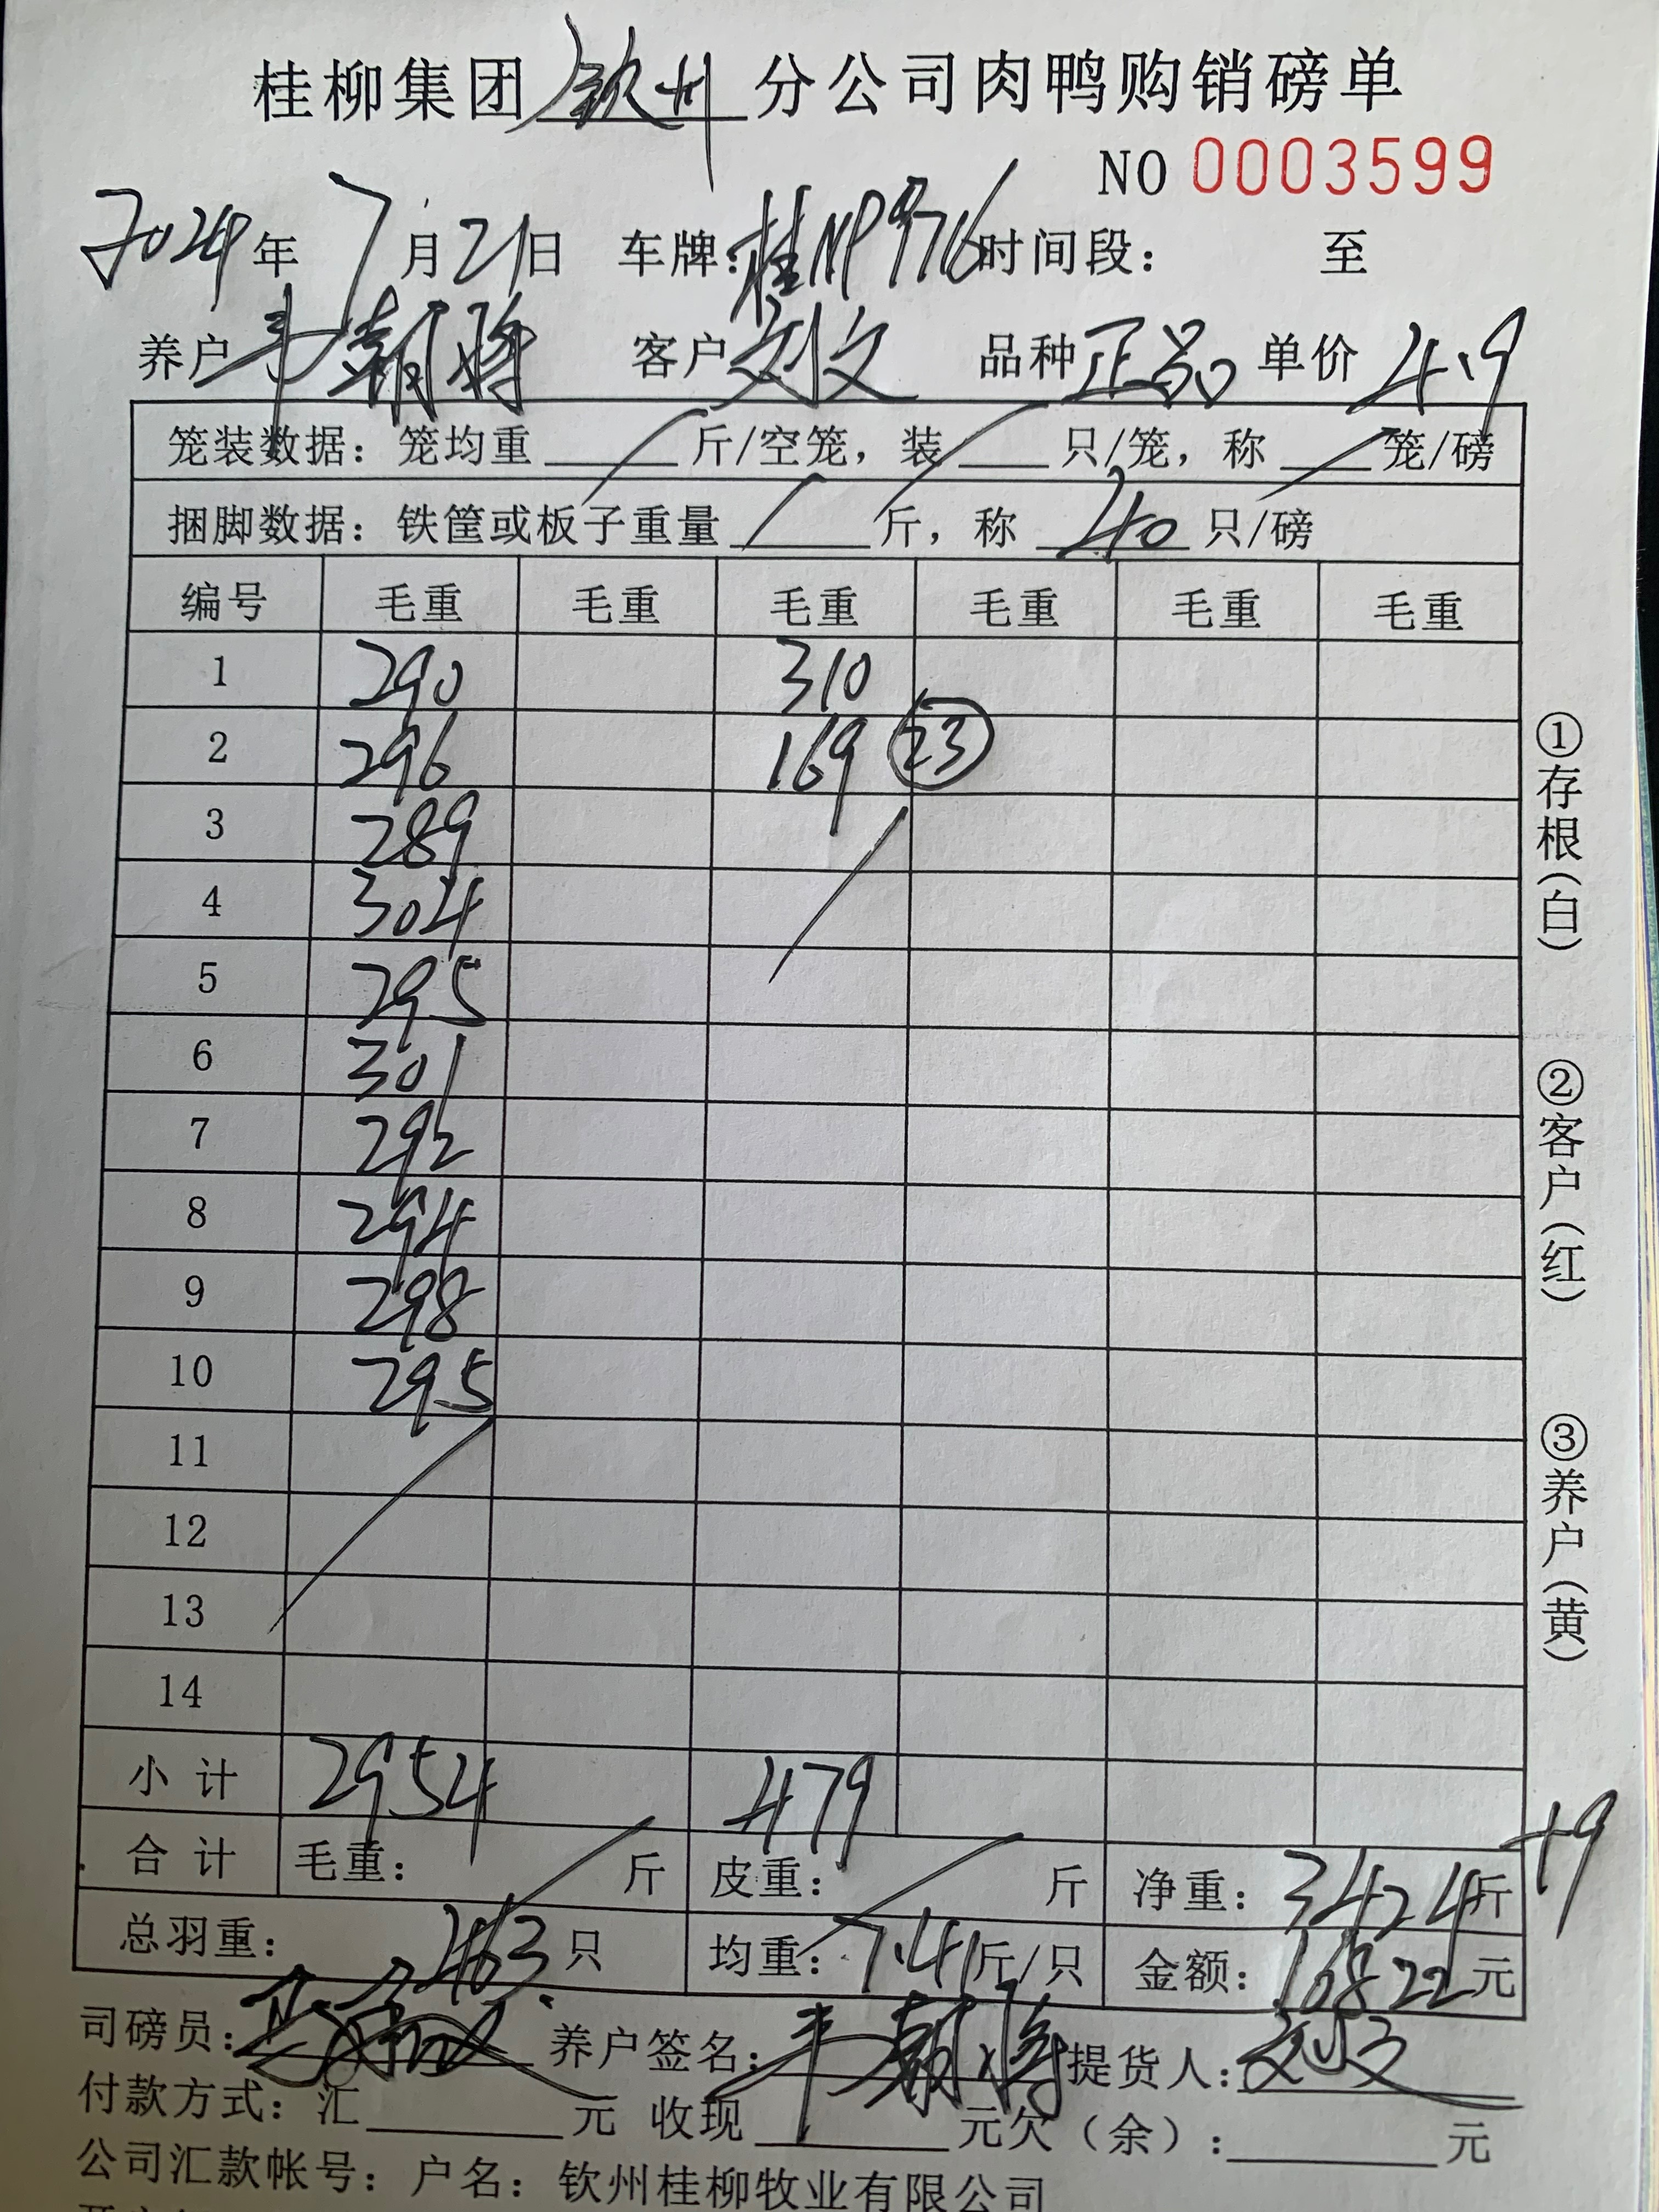 桂柳集团 钦州 分公司肉鸭购销磅单
NO 0003599
2024年 7月21日 车牌:桂NP976 时间段: 至
养户 韦朝将 客户 刘文 品种 正品 单价 4.9
笼装数据: 笼均重 / 斤/空笼, 装 / 只/笼, 称 / 笼/磅
捆脚数据: 铁筐或板子重量 / 斤, 称 40 只/磅
编号 毛重 毛重 毛重 毛重 毛重 毛重
1 290 310
2 296 169 ㉓
3 289
4 304
5 295
6 301
7 292
8 294
9 298
10 295
11
12
13
14
小计 2954 479
合计 毛重: / 斤 皮重: / 斤 净重: 3424斤 +9
总羽重: 463只 均重: 7.41斤/只 金额: 16822元
司磅员: 养户签名: 韦朝将 提货人: 刘文
付款方式: 汇 元 收现 元欠(余): 元
公司汇款帐号: 户名: 钦州桂柳牧业有限公司
①存根(白)
②客户(红)
③养户(黄)